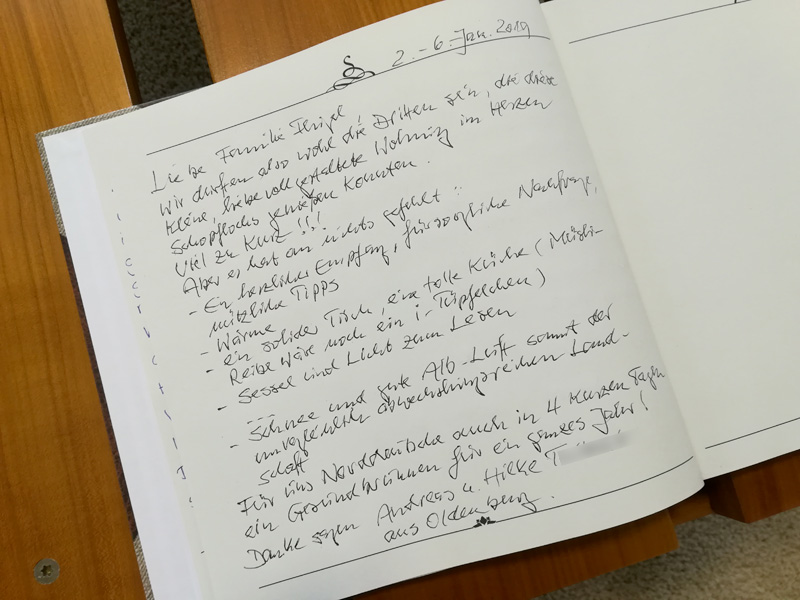 2.-6. Jan. 2019
Liebe Familie
wir durften also wohl die Dritten sein, die diese
kleine, liebevoll gestaltete Wohnung im Herzen
Schopflochs genießen konnten.
Viel zu kurz!!!
Aber es hat an nichts gefehlt:
- Ein herzlicher Empfang, fürsorgliche Nachfrage,
nützliche Tipps
- Wärme
- ein solider Tisch, eine tolle Küche (Müsli-
Reibe wäre noch ein i-Tüpfelchen)
- Sessel und Licht zum Lesen
...
- Schnee und gute Alb-Luft samt der
unvergleichlich abwechslungsreichen Land-
schaft
Für uns Norddeutsche auch in 4 kurzen Tagen
ein Gesundbrunnen für ein ganzes Jahr!
Danke sagen Andreas u. Hilke T
aus Oldenburg.